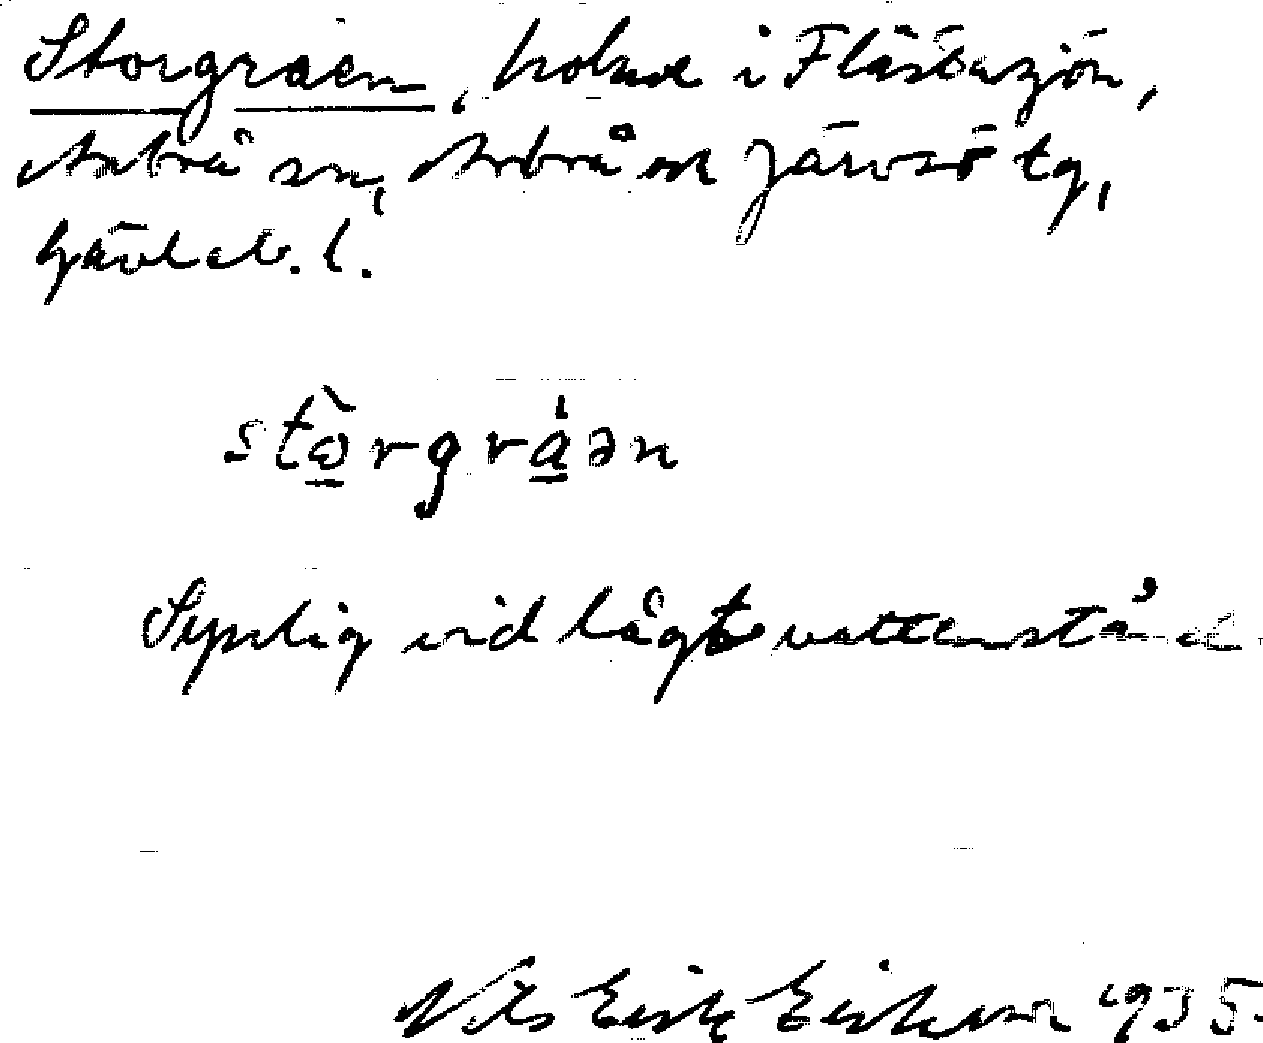 Storgraen, holme i Flästasjön,
Arbrå sn, Arbrå ock Järvsö tg,
Gävleb. l.
stὼ̲rgrá̲ən
Synlig vid lågt vattenstånd
Nils Erik Eriksson 1935.